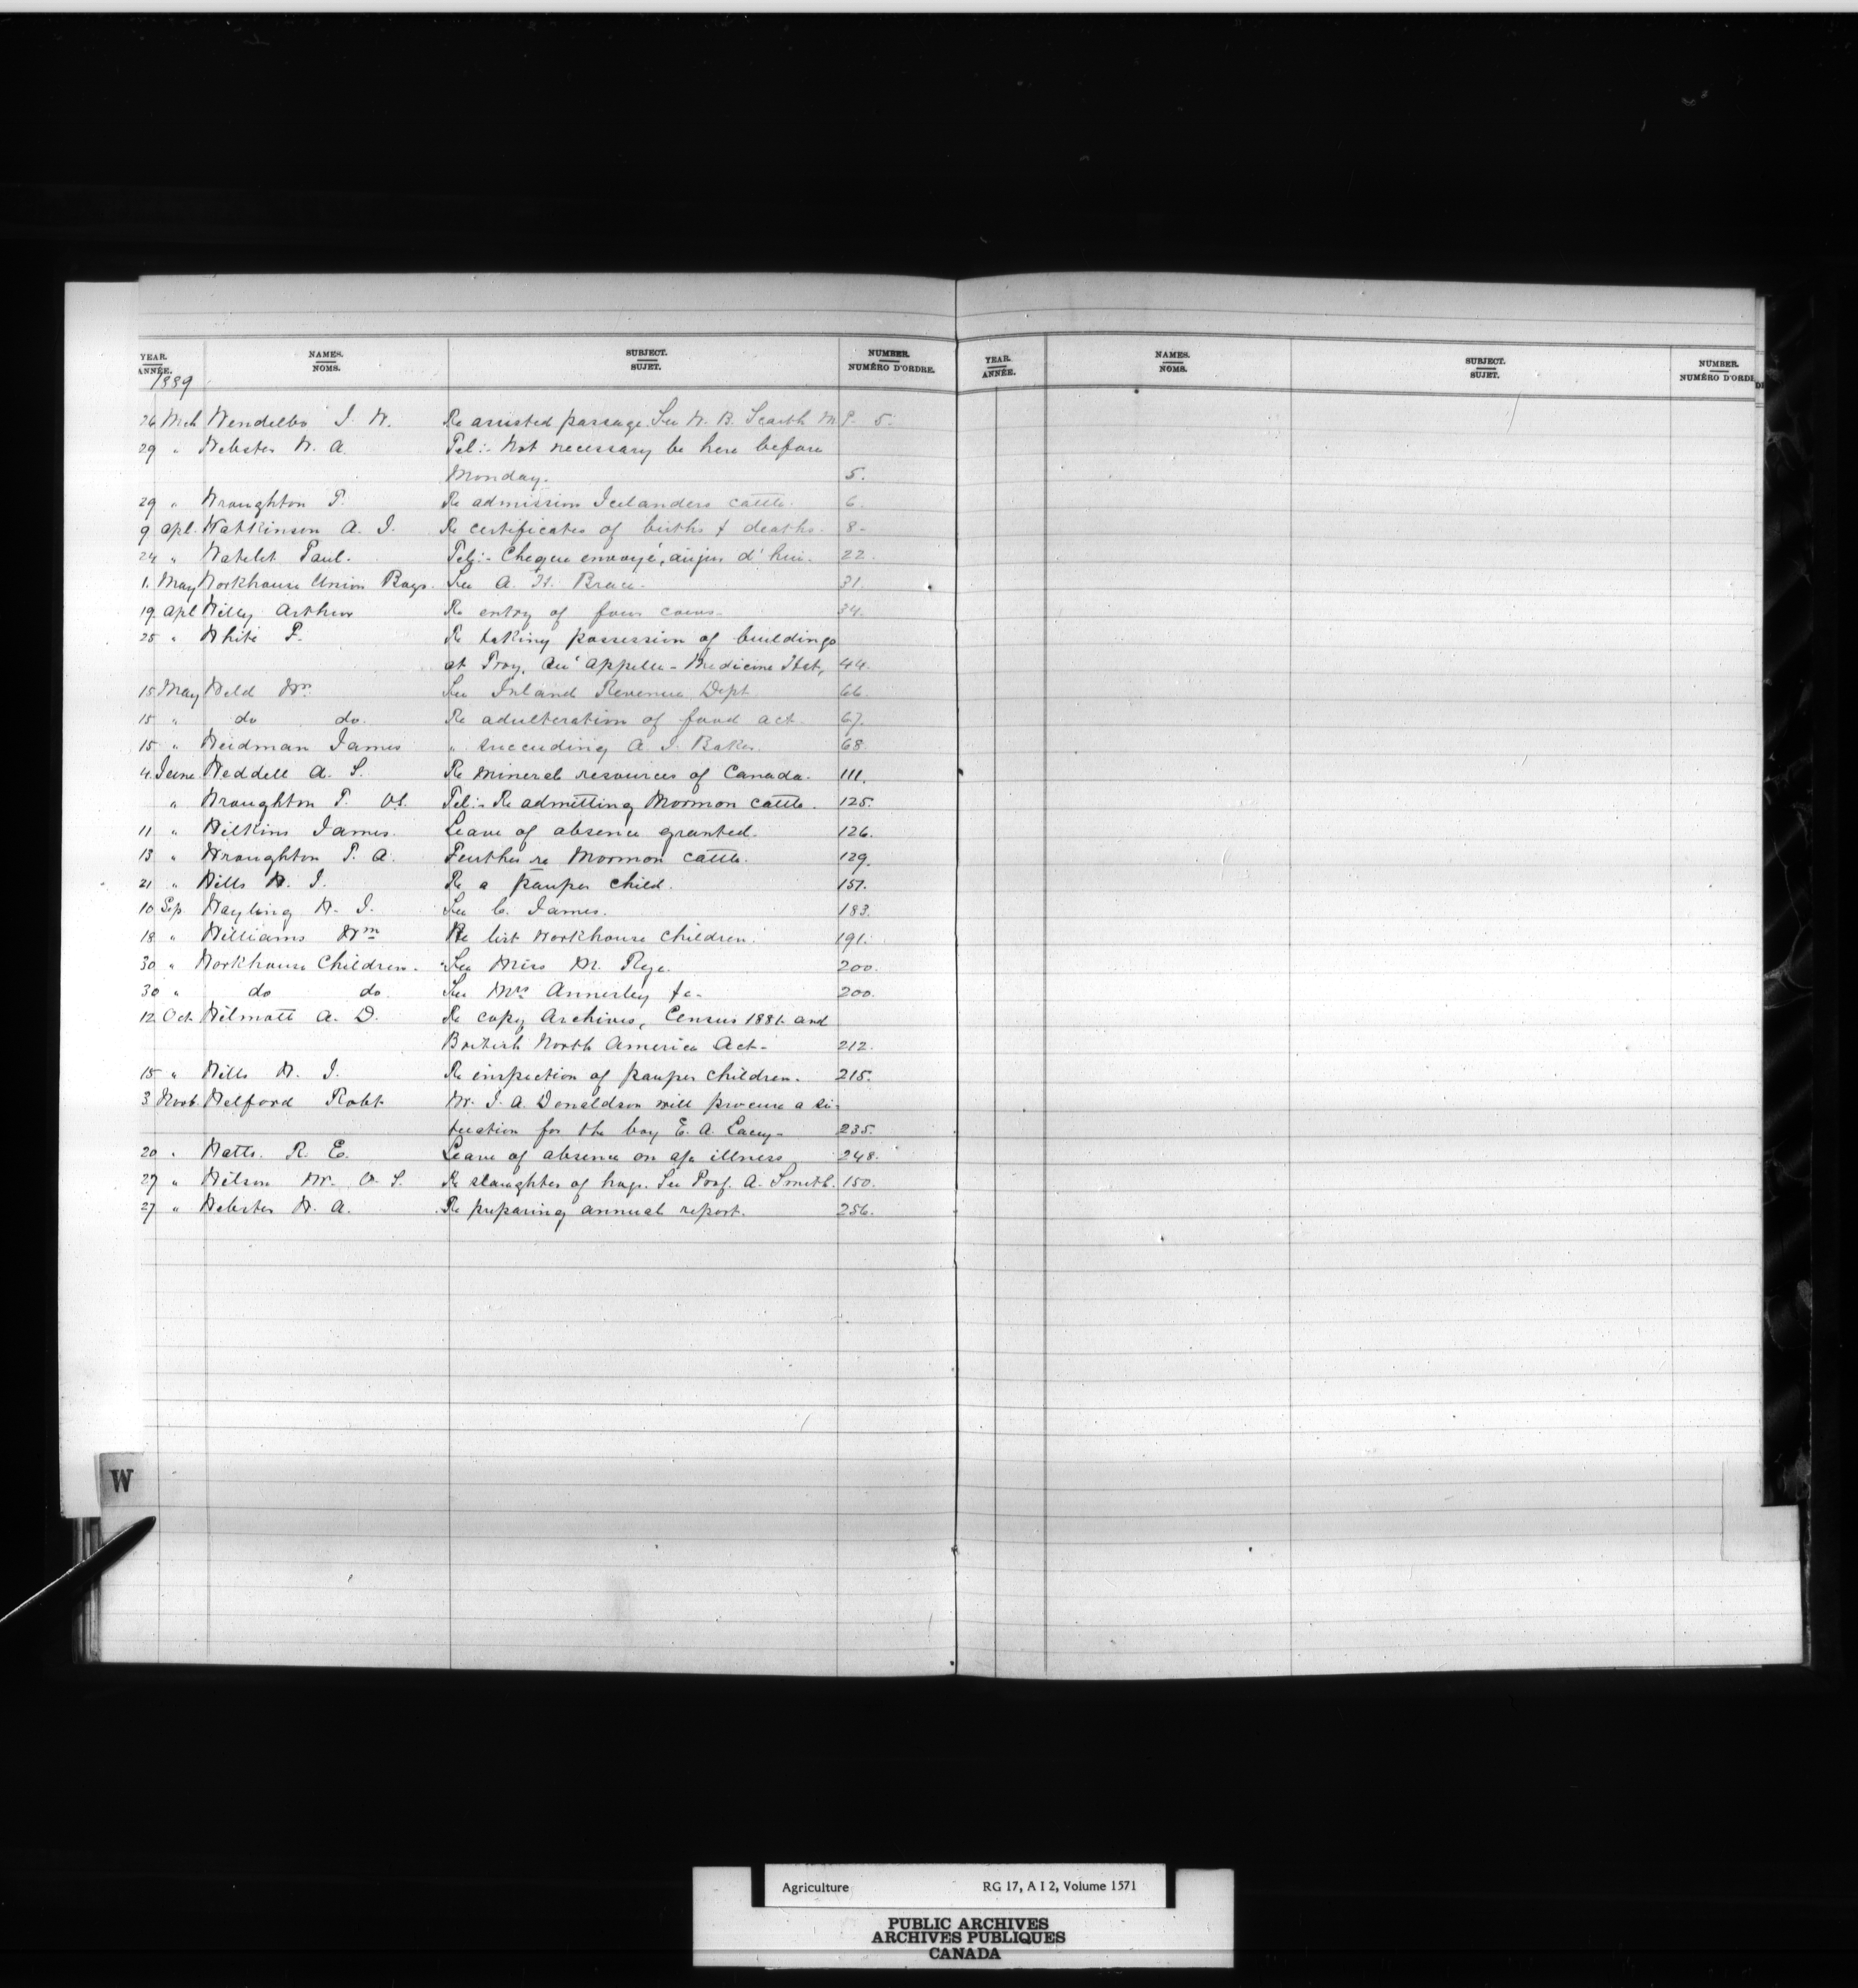 YEAR. NAMES. SUBJECT. NUMBER. YEAR. NAMES. SUBJECT. NUMBER.
ANNÉE. NOMS. SUJET. NUMÉRO D'ORDRE. ANNÉE. NOMS. SUJET. NUMÉRO D'ORDR
1889
26 Mch Wendelbo J. W. Re assisted passage. See W. B. Scarth M.P. 5.
29 " Webster W. A. Tel:- Not necessary be here before
Monday. 5.
29 " Wroughton T. Re admission Icelanders cattle. 6.
9 Apl. Watkinson A. J. Re certificates of births & deaths. 8-
24 " Watelet Paul. Telg:- Cheque envoyé, aujur d'hui. 22.
1. May Workhouse Union Boys. See A. H. Brace. 31.
19. Apl Willey Arthur Re entry of four cows. 34.
25 " White F. Re taking possession of buildings
at Troy, Qu'Appelle - Medicine Hat, 44.
15 May Weld Wm. See Inland Revenue Dept. 66.
15 " do do. Re adulteration of food act. 67.
15 " Weidman James " succeeding A. J. Baker. 68.
4. June. Weddell A. S. Re mineral resources of Canada. 111.
" Wroughton T. Tel:- Re admitting Mormon cattle. 125.
11 " Wilkins James. Leave of absence granted. 126.
13 " Wroughton T. A. Further re Mormon cattle. 129.
21 " Wills W. J. Re a pauper child. 151.
10 Sep. Wayling W. J. See C. James. 183.
18 " Williams Wm Re list workhouse children. 191.
30 " Workhouse Children. See Miss M. Rye. 200.
30 " do do. See Mrs Annerley &c- 200.
12 Oct. Wilmott A. D. Re copy Archives, Census 1881 and
British North America Act- 212.
15 " Wills W. J. Re inspection of pauper children. 215.
3 Novb. Welford Robt. Mr. J. A. Donaldson will procure a si-
tuation for the boy E. A. Lacey- 235.
20 " Watts. R. E. Leave of absence on a/c illness 248.
27 " Wilson Mr. O. S. Re slaughter of hogs. See Prof. A. Smith. 150.
27 " Webster W. A. Re preparing annual report. 256.
W
Agriculture RG 17, A I 2, Volume 1571
PUBLIC ARCHIVES
ARCHIVES PUBLIQUES
CANADA